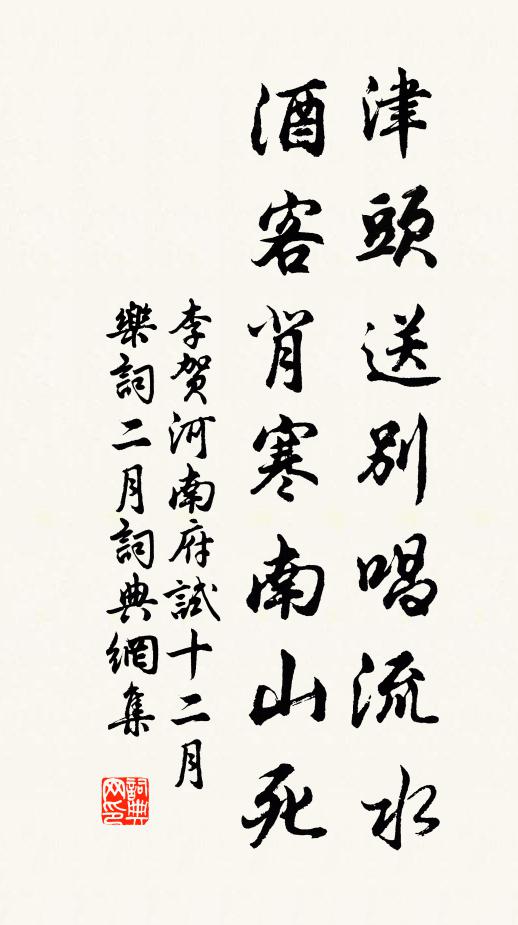 津頭送別唱流水
酒客背寒南山死
李賀河南府試十二月
樂詞二月詞典網集
詞典
网印